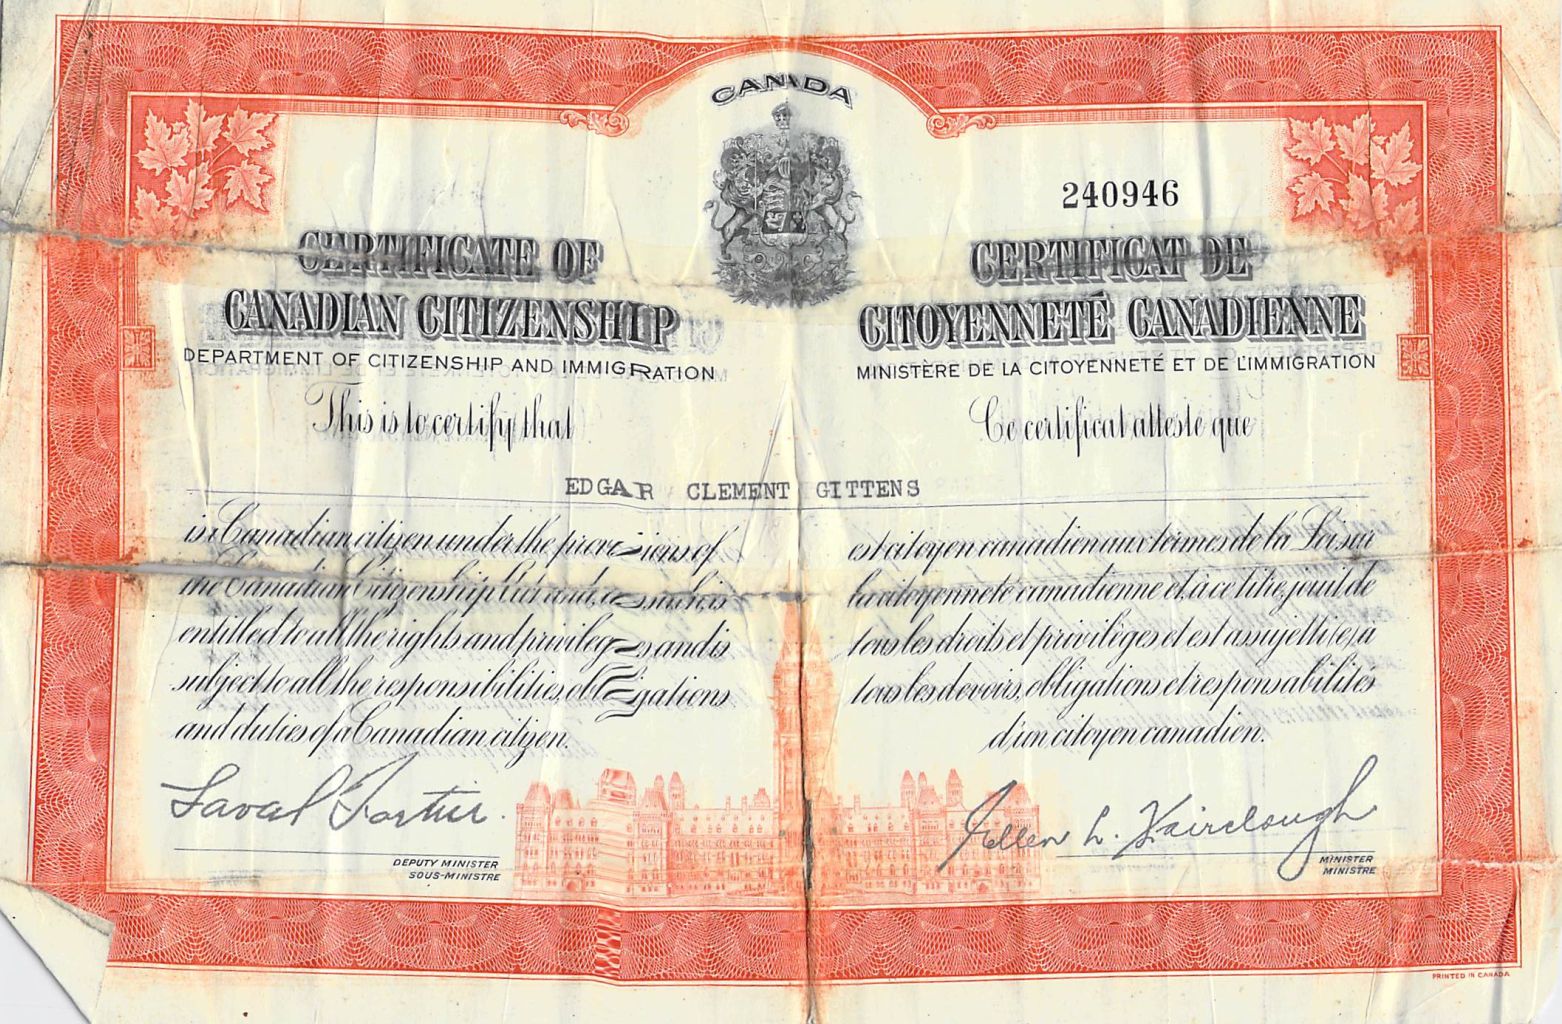 CANADA
240946
CERTIFICATE OF
CANADIAN CITIZENSHIP
DEPARTMENT OF CITIZENSHIP AND IMMIGRATION
This is to certify that
CERTIFICAT DE
CITOYENNETÉ CANADIENNE
MINISTÈRE DE LA CITOYENNETÉ ET DE L'IMMIGRATION
Ce certificat atteste que
EDGAR CLEMENT GITTENS
is a Canadian citizen under the provisions of
the Canadian Citizenship Act and, as such, is
entitled to all the rights and privileges and is
subject to all the responsibilities, obligations
and duties of a Canadian citizen.
est citoyen canadien aux termes de la Loi sur
la citoyenneté canadienne et, à ce titre, jouit de
tous les droits et privilèges et est assujetti(e) à
tous les devoirs, obligations et responsabilités
d'un citoyen canadien.
Laval Fortier.
DEPUTY MINISTER
SOUS-MINISTRE
Ellen L. Fairclough
MINISTER
MINISTRE
PRINTED IN CANADA